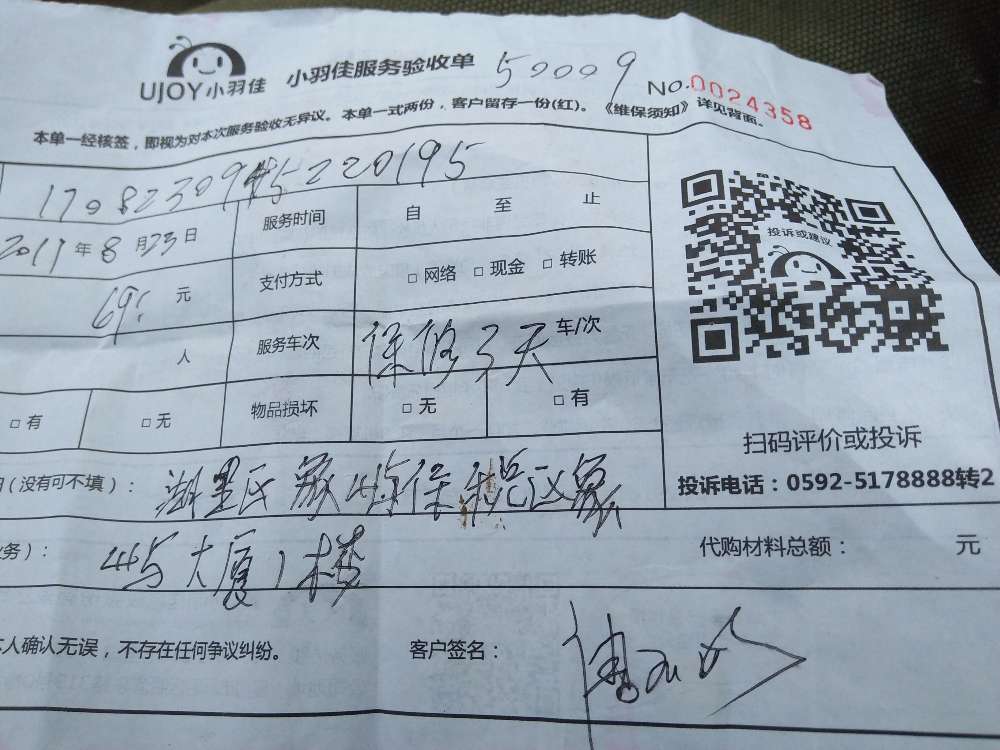 UJOY小羽佳 小羽佳服务验收单 50009 No.0024358
本单一经核签，即视为对本次服务验收无异议。本单一式两份，客户留存一份(红)。《维保须知》详见背面。
服务时间 自 至 止
2017年8月23日
支付方式 □网络 □现金 □转账
元
服务车次 保修3天 车/次
人
□有 □无 物品损坏 □无 □有
投诉或建议
扫码评价或投诉
投诉电话：0592-5178888转2
(没有可不填)： 湖里区象屿保税区象
务)： 屿大厦1楼 代购材料总额： 元
本人确认无误，不存在任何争议纠纷。 客户签名：